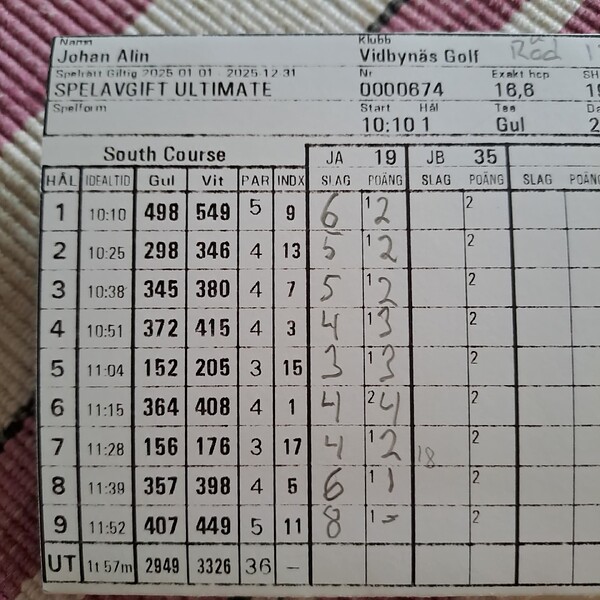 Namn Klubb
Johan Alin Vidbynäs Golf Röd
Spelrätt Giltig 2025-01-01 - 2025-12-31 Nr Exakt hcp SH
SPELAVGIFT ULTIMATE 0000674 16,6
Spelform Start Hål Tee
10:10 1 Gul 2
South Course JA 19 JB 35
HÅL IDEALTID Gul Vit PAR INDX SLAG POÄNG SLAG POÄNG SLAG POÄNG
1 10:10 498 549 5 9 6 1 2 2
2 10:25 298 346 4 13 5 1 2 2
3 10:38 345 380 4 7 5 1 2 2
4 10:51 372 415 4 3 4 1 3 2
5 11:04 152 205 3 15 3 1 3 2
6 11:15 364 408 4 1 4 2 4 2
7 11:28 156 176 3 17 4 1 2 18 2
8 11:39 357 398 4 5 6 1 1 2
9 11:52 407 449 5 11 8 1 - 2
UT 1t 57m 2949 3326 36 -